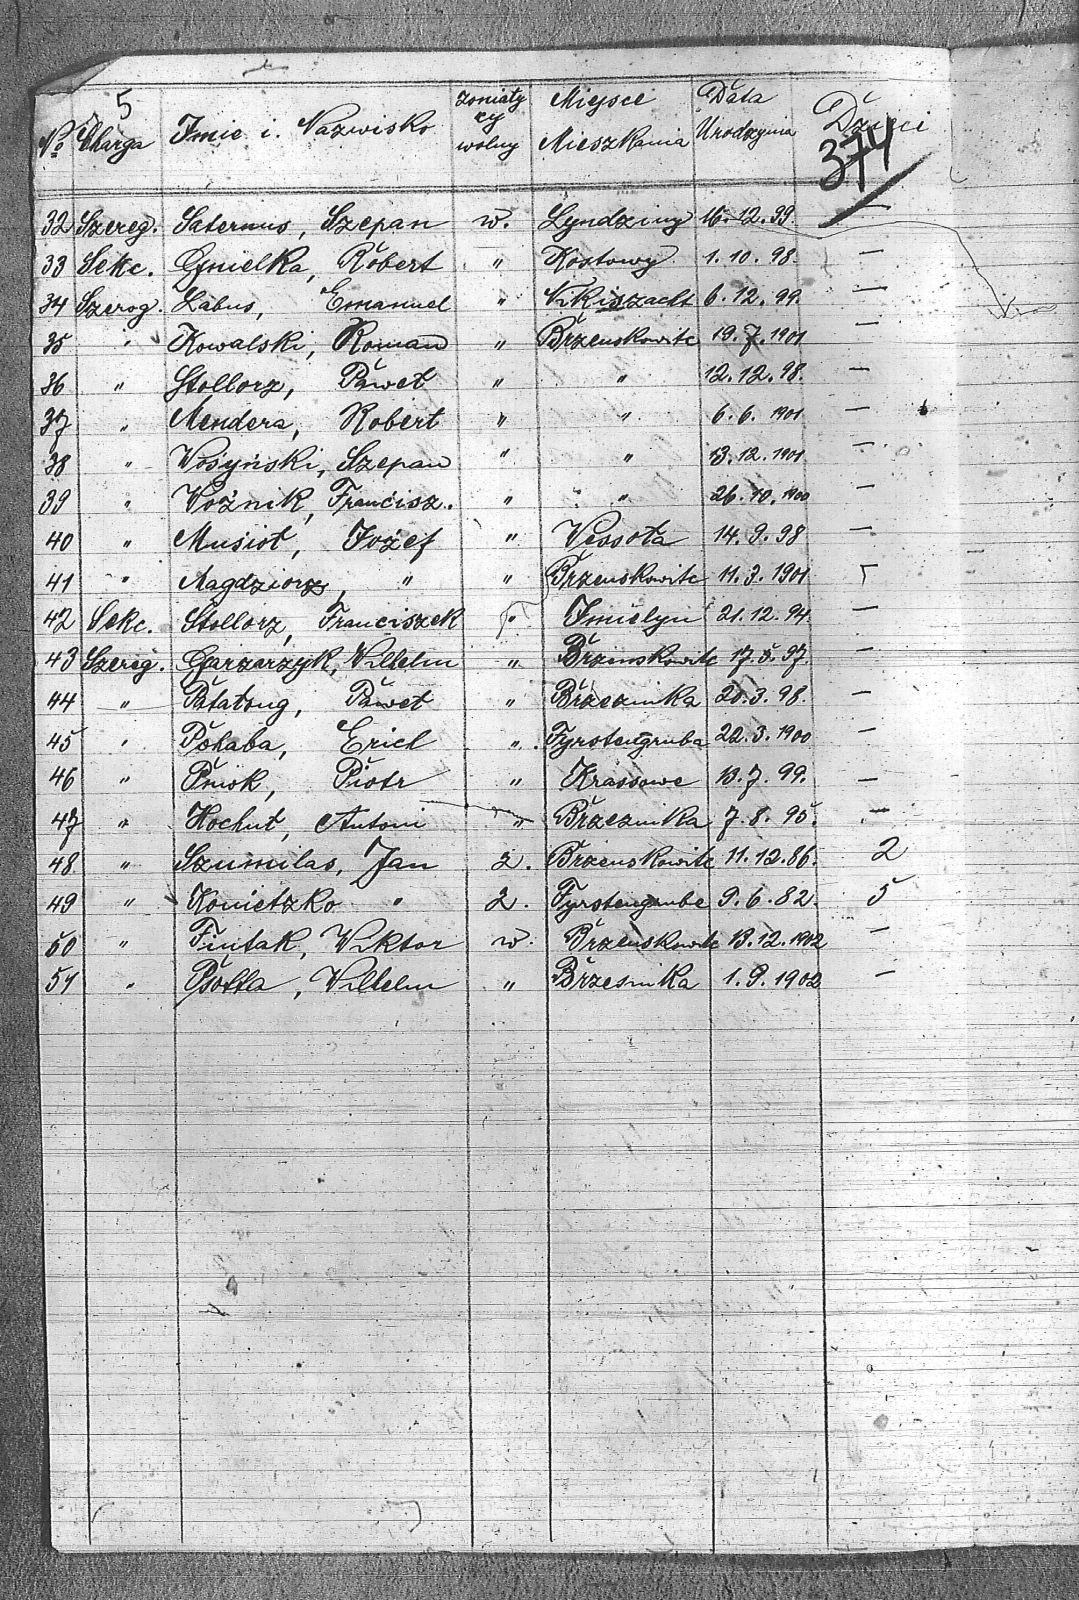 5
374
No Charga Imie i. Nazwisko zoniaty cy wolny Miejsce Mieszkania Data Urodzynia Dzieci
32 Szereg. Saternus, Szepan w. Lyndziny 16.12.99 —
33 Sekc. Gmielka, Robert " Kostowy 1.10.98. —
34 Szereg. Labus, Emanuel " Nikiszacht 6.12.99. —
35 " Kowalski, Roman " Brzenskowitc 19.7.1901 —
36 " Stollorz, Paweł " " 12.12.98. —
37 " Mendera, Robert " " 6.6.1901 —
38 " Wosyński, Szepan " " 13.12.1901 —
39 " Woźnik, Francisz. " " 26.10.1900 —
40 " Musioł, Jozef " Wessoła 14.9.98 —
41 " Magdziorz, " " Brzenskowitc 11.3.1901
42 Sekc. Stollorz, Franciszek " Imielyn 21.12.94. —
43 Szereg. Garzarzyk, Wilhelm " Brzenskowitc 17.5.97. —
44 " Patałong, Paweł " Brzezinka 20.3.98. —
45 " Pohaba, Erich " Fyrstengruba 22.3.1900 —
46 " Pniok, Piotr " Krassowe 13.7.99. —
47 " Hochuł, Antoni " Brzezinka 7.8.95. —
48 " Szumilas, Jan z. Brzenskowitc 11.12.86. 2
49 " Konietzko " z. Fyrstengrube 9.6.82. 5
50 " Fiutak, Wiktor w. Brzenskowitc 13.12.1902 —
51 " Psotta, Wilhelm " Brzesinka 1.9.1902 —